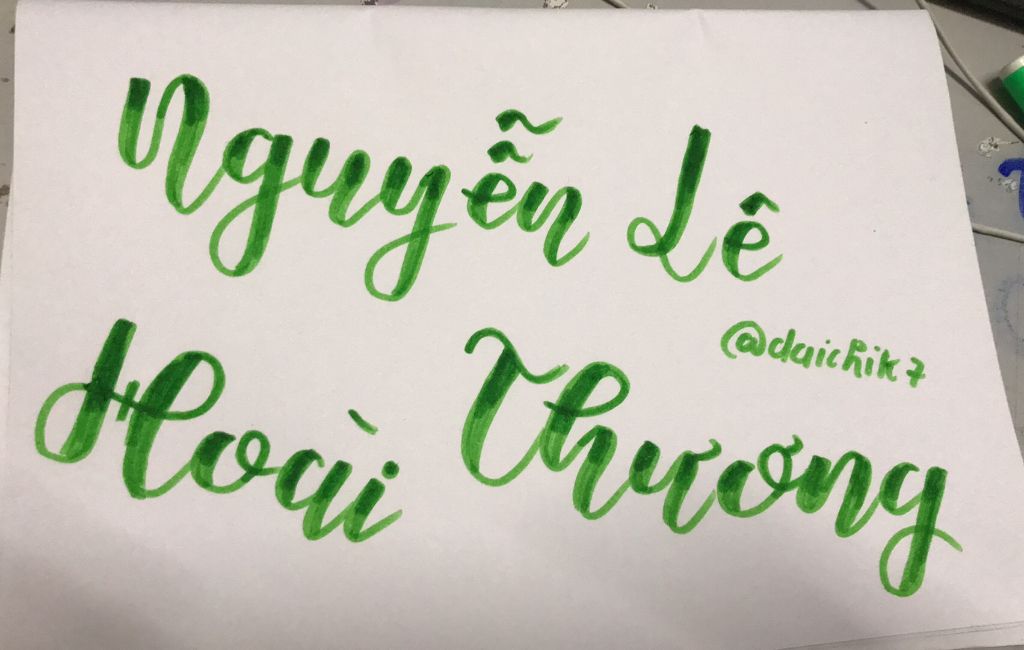 Nguyễn Lê
@daichik7
Hoài Thương